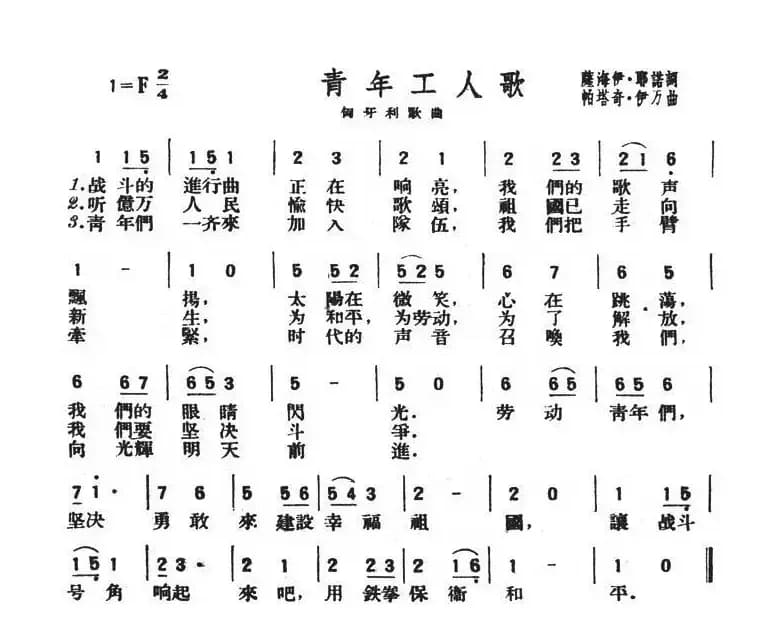 1=F 2/4
青年工人歌
薩海伊·耶諾詞
帕塔奇·伊万曲
匈牙利歌曲
1 1 5 | 1 5 1 | 2 3 | 2 1 | 2 2 3 | 2 1 6 |
1.战斗的 進行曲 正在 响亮, 我們的 歌声
2.听億万 人民 愉快 歌頌, 祖國已 走向
3.靑年們 一齐來 加入 隊伍, 我們把 手臂
1 - | 1 0 | 5 5 2 | 5 2 5 | 6 7 | 6 5 |
飄 揚, 太陽在 微笑, 心在 跳蕩,
新 生, 为和平, 为劳动, 为了 解放,
牽 緊, 时代的 声音 召喚 我們,
6 6 7 | 6 5 3 | 5 - | 5 0 | 6 6 5 | 6 5 5 |
我們的 眼睛 閃 光. 劳动 靑年們,
我們要 坚决 斗 爭.
向光輝 明天 前 進.
7 1· | 7 6 | 5 5 6 | 5 4 3 | 2 - | 2 0 | 1 1 5 |
坚决 勇敢 來建設 幸福 祖 國, 讓战斗
1 5 1 | 2 3· | 2 1 | 2 2 3 | 2 1 6 | 1 - | 1 0 ‖
号角 响起 來吧, 用鉄拳 保衛 和 平.